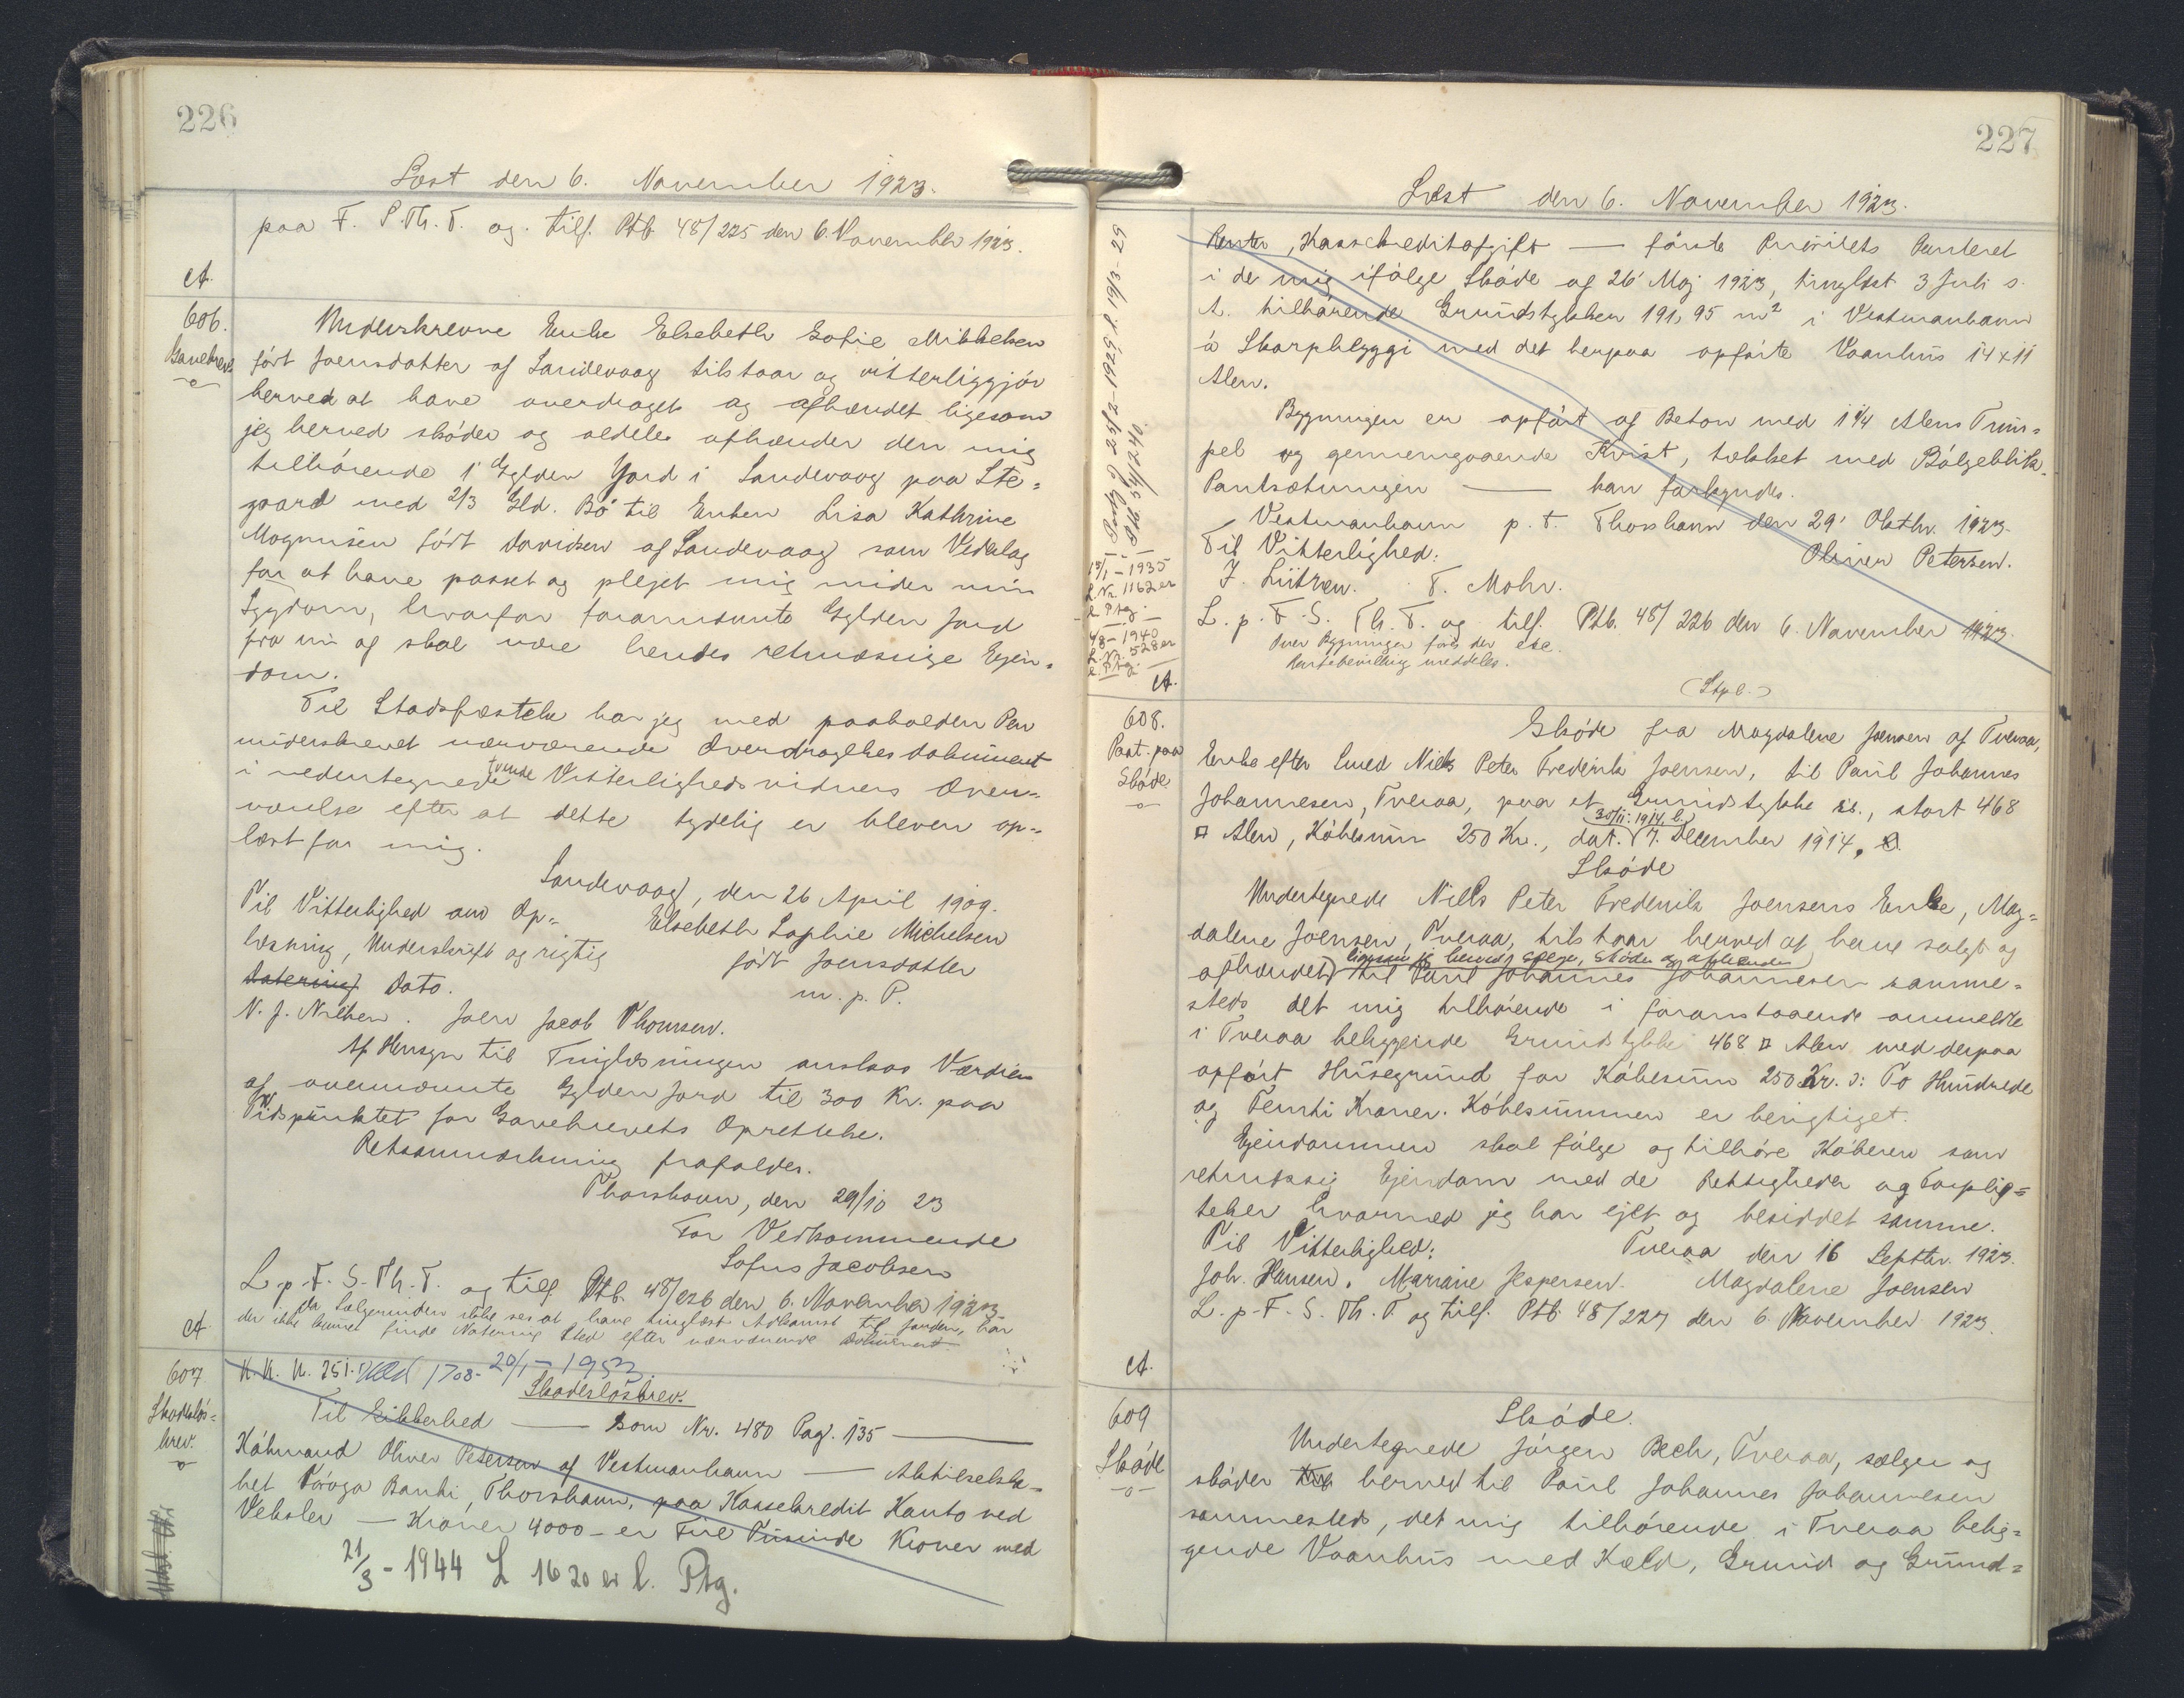 226
Læst den 6. November 1923.
paa F. S. Th. T. og tilf. Ptb 48/225 den 6. November 1923.
A.
606.
Gavebrev.
Underskrevne Enke Elsebeth Sofie Mikkelsen
født Joensdatter af Sandevaag tilstaar og vitterliggjör
herved at have overdraget og afhændet ligesom
jeg herved sköder og aldeles afhænder den mig
tilhörende 1 Gylden Jord i Sandevaag paa Ste=
gaard med 2/3 Gld. Bö til Enken Lisa Kathrine
Magnusen födt Davidsen af Sandevaag som Vederlag
for at have passet og plejet mig under min
Sygdom, hvorfor forannævnte Gylden Jord
fra nu af skal være hendes retmæssige Ejen=
dom.
Til Stadfæstelse har jeg med paaholden Pen
underskrevet nærværende Overdragelsesdokument
i nedentegnede tvende Vitterlighedsvidners Over=
værelse efter at dette tydelig er bleven op=
læst for mig.
Sandevaag, den 26 April 1909.
Til Vitterlighed om Op= Elsebeth Sophie Michelsen
læsning, Underskrift og rigtig födt Joensdatter
Datering Dato. m. p. P.
N. J. Nielsen. Joen Jacob Thomsen.
Af Hensyn til Tinglæsningen anslaas Værdien
af ovennævnte Gylden Jord til 300 Kr. paa
Tidspunktet for Gavebrevets Oprettelse.
Retsanmærkning frafaldes.
Thorshavn, den 29/10 23
For Vedkommende
Sofus Jacobsen
L. p. F. S. Th. T. og tilf. Ptb. 48/226 den 6. November 1923.
Da Sælgerinden ikke ses at have tinglæst Adkomst til Jorden, har
der ikke kunnet finde Notering Sted efter nærværende Dokument
A.
607
Skadeslös=
brev.
K. K. N. 251. 1708- 20/1 - 1953
Skadeslösbrev.
Til Sikkerhed — som Nr. 480 Pag. 135 —
Köbmand Oliver Petersen af Vestmanhavn — Aktieselska=
bet Föroya Banki, Thorshavn, paa Kassekredit Konto ved
Veksler — Kroner 4000 - er Fire Tusinde Kroner med
21/3 - 1944 L 1620 er l. Ptg.
227
Læst den 6. November 1923.
Renter, Kassekreditafgift — förste Prioritets Panteret
i de mig ifölge Sköde af 26 Maj 1923, tinglæst 3 Juli s.
A. tilhörende Grundstykker 191,95 m² i Vestmanhavn
á Skarphlyggi med det herpaa opförte Vaanhus 14 x 11
Alen.
Bygningen er opfört af Beton med 1 1/4 Alens Trum=
pel og gennemgaaende Kvist, tækket med Bölgeblik.
Pantsætningen — kan forkyndes.
Vestmanhavn p. t. Thorshavn den 29' Oktbr. 1923.
Til Vitterlighed: Oliver Petersen.
J. Lützen. T. Mohr.
L. p. F. S. Th. T. og tilf. Ptb. 48/226 den 6. November 1923.
15/1 - 1935
L. Nr. 1162 er
l. Ptg.
4/8 - 1940
L. Nr. 528 er
l. Ptg.
A.
(Stpl.)
608.
Paat. paa
Sköde
Sköde fra Magdalene Joensen af Tveraa,
Enke efter Smed Niels Peter Frederik Joensen, til Paul Johannes
Johannesen, Tveraa, paa et Grundstykke sts., stort 468
□ Alen, Köbesum 250 Kr., dat. 30/11. 1914, l. 7. December 1914.
Sköde
Undertegnede Niels Peter Frederik Joensens Enke, Mag=
dalene Joensen, Tveraa, tilstaar herved at have solgt og
afhændet ligesom jeg herved sælge, sköde og afhænder
til Paul Johannes Johannesen samme=
steds det mig tilhörende i foranstaaende anmeldte
i Tveraa beliggende Grundstykke 468 □ Alen med derpaa
opfört Husegrund for Köbesum 250 Kr. ɔ: To Hundrede
og Femti Kroner. Köbesummen er berigtiget.
Ejendommen skal fölge og tilhöre Köberen som
retmæssig Ejendom med de Rettigheder og Forplig=
telser hvormed jeg har ejet og besiddet samme.
Til Vitterlighed: Tveraa den 16 Septbr. 1923.
Joh. Hansen. Mariane Jespersen. Magdalene Joensen
L. p. F. S. Th. T. og tilf. Ptb. 48/227 den 6. November 1923.
A.
609
Sköde
Sköde.
Undertegnede Jörgen Bech, Tveraa, sælger og
sköder herved til Paul Johannes Johannesen
sammesteds, det mig tilhörende i Tveraa belig=
gende Vaanhus med Kæld, Grund og Grund=